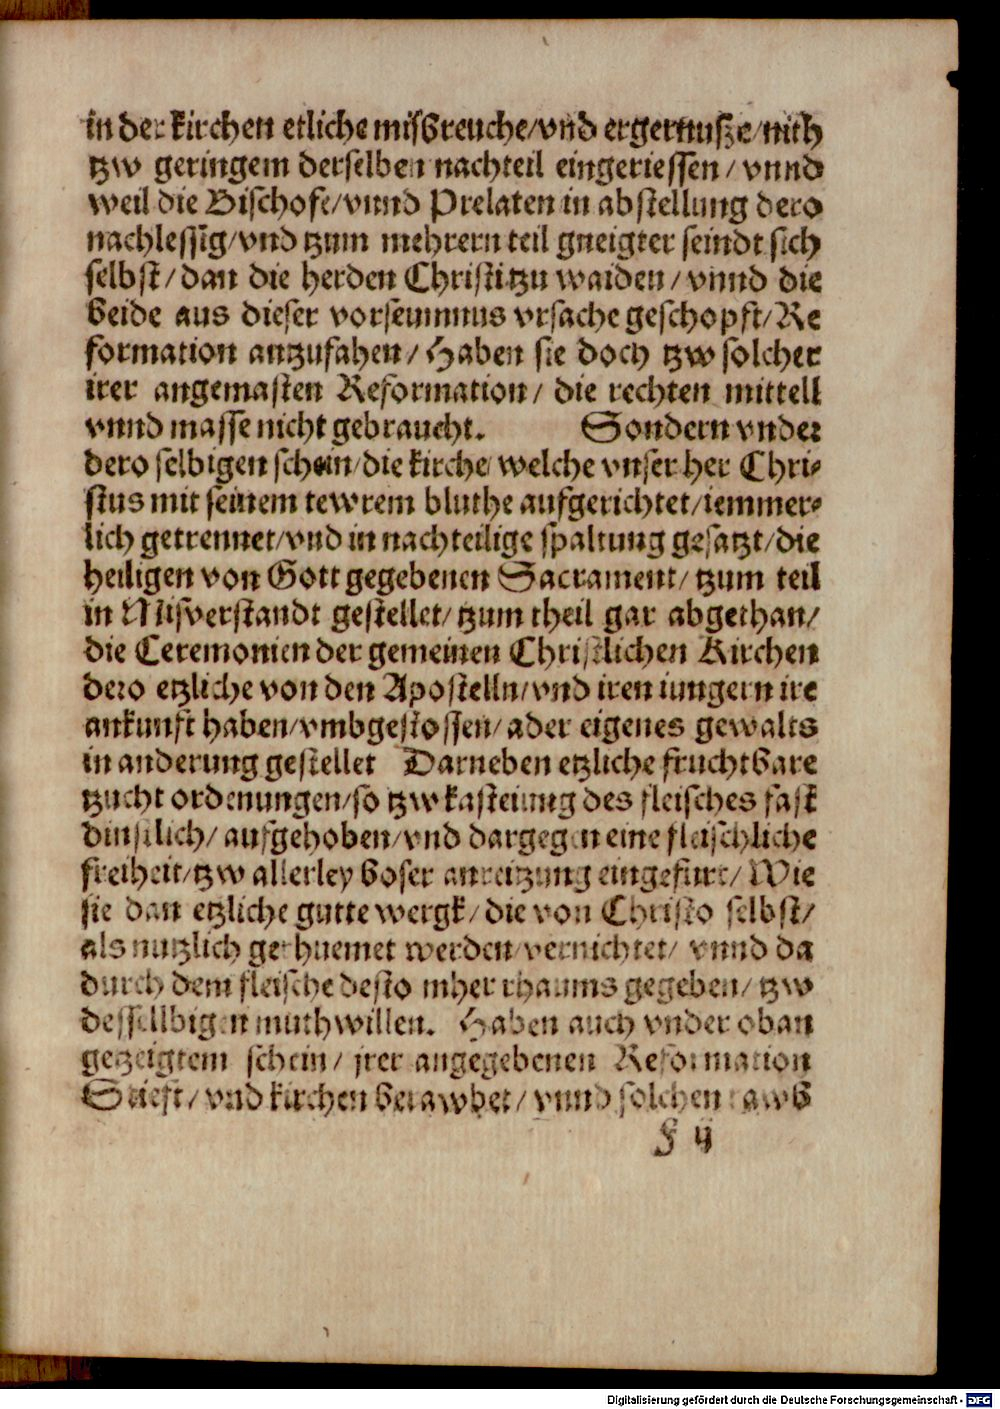 in der kirchen etliche misbreuche/vnd ergernusze/nith
tzw geringem derselben nachteil eingeriessen/ vnnd
weil die Bischofe/vnnd Prelaten in abstellung dero
nachlessig/vnd tzum mehrern teil gneigter seindt sich
selbst/ dan die herden Christi tzu waiden/ vnnd die
beide aus dieser vorseumnus vrsache geschopft/ Re
formation antzufahen/ Haben sie doch tzw solcher
irer angemasten Reformation/ die rechten mittell
vnnd masse nicht gebraucht. Sondern vnder
dero selbigen schein/die kirche welche vnser her Chri-
stus mit seinem tewrem bluthe aufgerichtet/iemmer-
lich getrennet/vnd in nachteilige spaltung gesatzt/die
heiligen von Gott gegebenen Sacrament/ tzum teil
in Misverstandt gestellet/ tzum theil gar abgethan/
die Ceremonien der gemeinen Christlichen Kirchen
dero etzliche von den Apostelln/vnd iren iungern ire
ankunft haben/vmbgestossen/ ader eigenes gewalts
in anderung gestellet Darneben etzliche fruchtbare
tzucht ordenungen/so tzw kasteiung des fleisches fast
dinstlich/ aufgehoben/vnd dargegen eine fleischliche
freiheit/tzw allerley boser anreitzung eingefurt/ Wie
sie dan etzliche gutte wergk/ die von Christo selbst/
als nutzlich gerhuemet werden/vernichtet/ vnnd da
durch dem fleische desto mher rhaums gegeben/ tzw
dessellbigen muthwillen. Haben auch vnder oban
getzeigtem schein/ jrer angegebenen Reformation
Stieft/ vnd kirchen berawbet/ vnnd solchen rawb
F ij
Digitalisierung gefördert durch die Deutsche Forschungsgemeinschaft - DFG